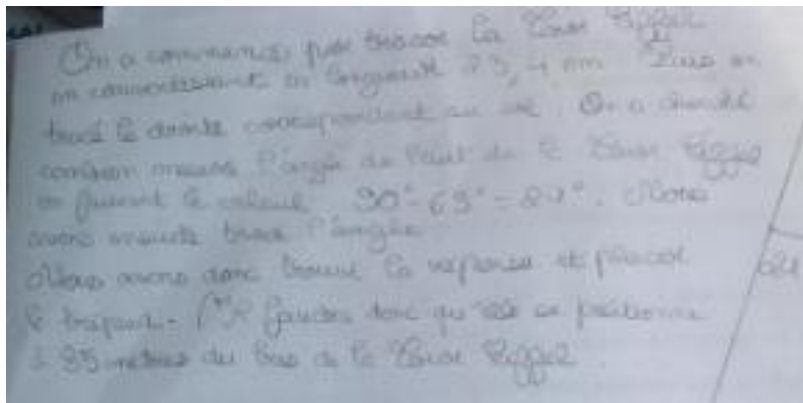 On a commencé par tracer la Tour Eiffel
en convertissant en longueur 23,4 cm Puis on
tracé la droite correspondant au sol. On a cherché
combien mesure l'angle du haut de la Tour Eiffel
en faisant le calcul 90° - 69° =. Nous
avons ensuite tracé l'angle
Nous avons donc trouvé la réponse et placer
le trépied. Il faudra donc qu'elle se positionne
à 95 mètres du bas de la Tour Eiffel.